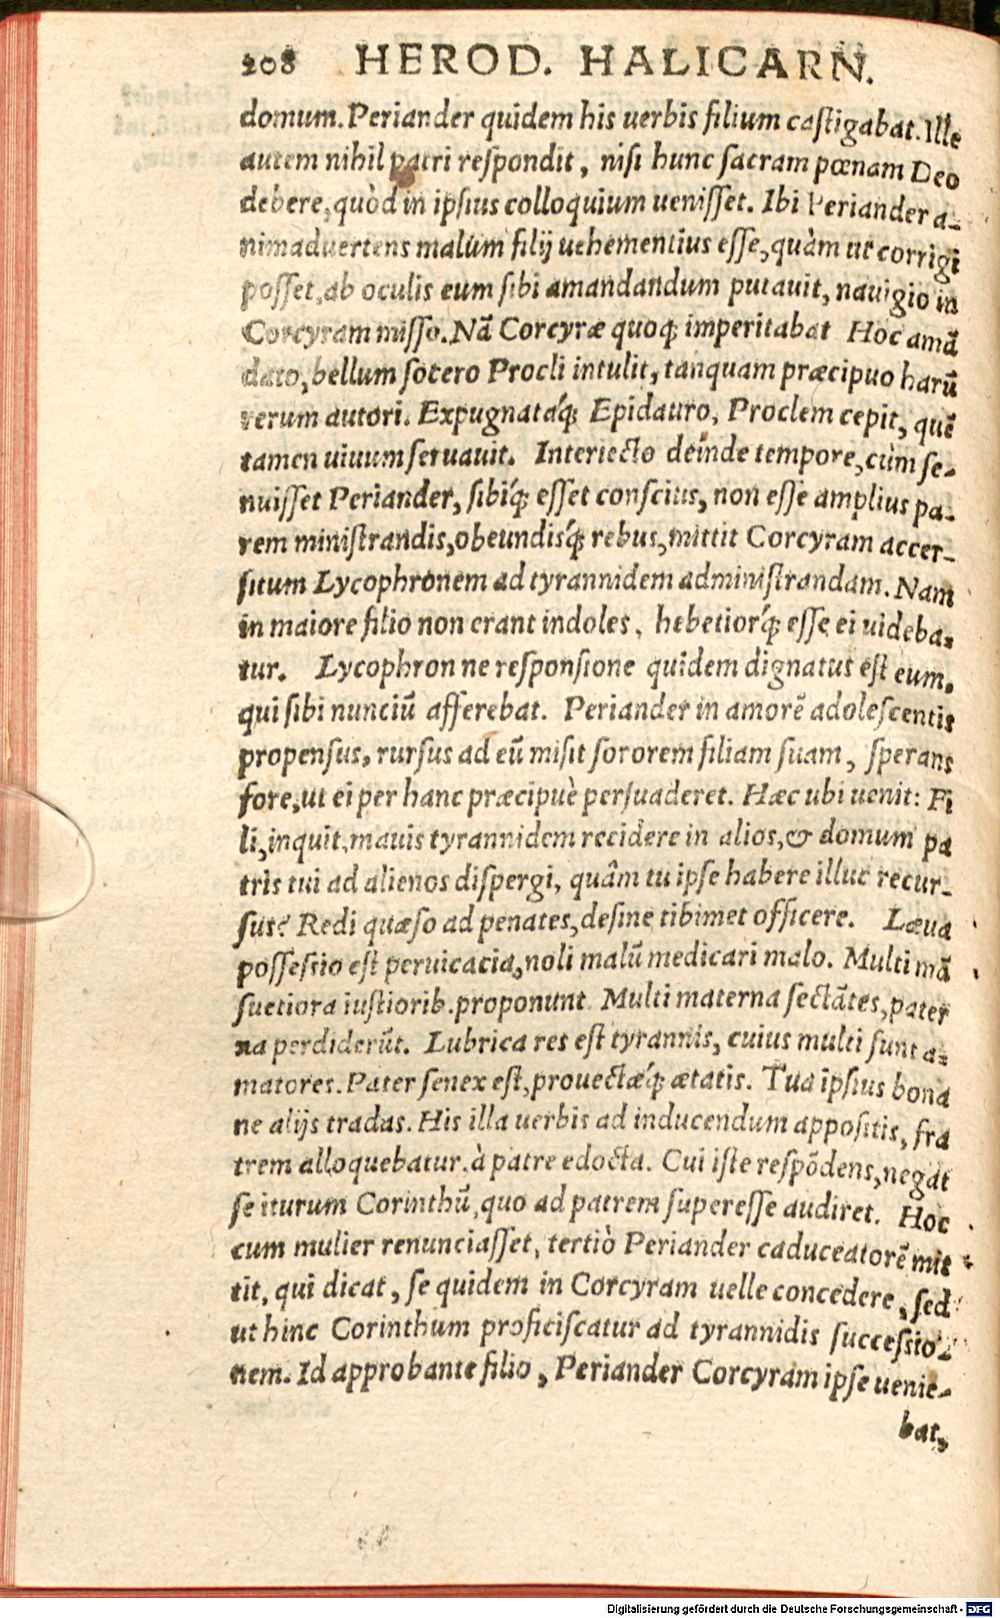 208 HEROD. HALICARN.
domum. Periander quidem his uerbis filium caſtigabat. Ille
autem nihil patri reſpondit, niſi hunc ſacram pœnam Deo
debere, quòd in ipſius colloquium ueniſſet. Ibi Periander a-
nimaduertens malum filij uehementius eſſe, quàm ut corrigi
poſſet, ab oculis eum ſibi amandandum putauit, nauigio in
Corcyram miſſo. Nã Corcyræ quoq; imperitabat Hoc amã
dato, bellum ſocero Procli intulit, tanquam præcipuo harũ
rerum autori. Expugnatáq; Epidauro, Proclem cepit, quẽ
tamen uiuum ſeruauit. Interiecto deinde tempore, cùm ſe-
nuiſſet Periander, ſibiq́; eſſet conſcius, non eſſe amplius pa-
rem miniſtrandis, obeundisq́; rebus, mittit Corcyram accer-
ſitum Lycophronem ad tyrannidem adminiſtrandam. Nam
in maiore filio non erant indoles, hebetiorq́; eſſe ei uideba-
tur. Lycophron ne reſponſione quidem dignatus eſt eum,
qui ſibi nunciũ afferebat. Periander in amorẽ adoleſcentis
propenſus, rurſus ad eũ miſit ſororem filiam ſuam, ſperans
fore, ut ei per hanc præcipuè perſuaderet. Hæc ubi uenit: Fi
li, inquit, mauis tyrannidem recidere in alios, & domum pa
tris tui ad alienos diſpergi, quâm tu ipſe habere illuc recur-
ſus? Redi quæſo ad penates, deſine tibimet officere. Læua
poſſeſsio eſt peruicacia, noli malũ medicari malo. Multi mã
ſuetiora iuſtiorib. proponunt Multi materna ſectãtes, pater
na perdiderũt. Lubrica res eſt tyrannis, cuius multi ſunt a-
matores. Pater ſenex eſt, prouectæq́; ætatis. Tua ipſius bona
ne alijs tradas. His illa uerbis ad inducendum appoſitis, fra
trem alloquebatur, à patre edocta. Cui iſte reſpõdens, negat
ſe iturum Corinthũ, quo ad patrem ſupereſſe audiret. Hoc
cum mulier renunciaſſet, tertiò Periander caduceatorẽ mit
tit, qui dicat, ſe quidem in Corcyram uelle concedere, ſed
ut hinc Corinthum proficiſcatur ad tyrannidis ſucceſsio-
nem. Id approbante filio, Periander Corcyram ipſe uenie-
bat,
Digitalisierung gefördert durch die Deutsche Forschungsgemeinschaft - DFG